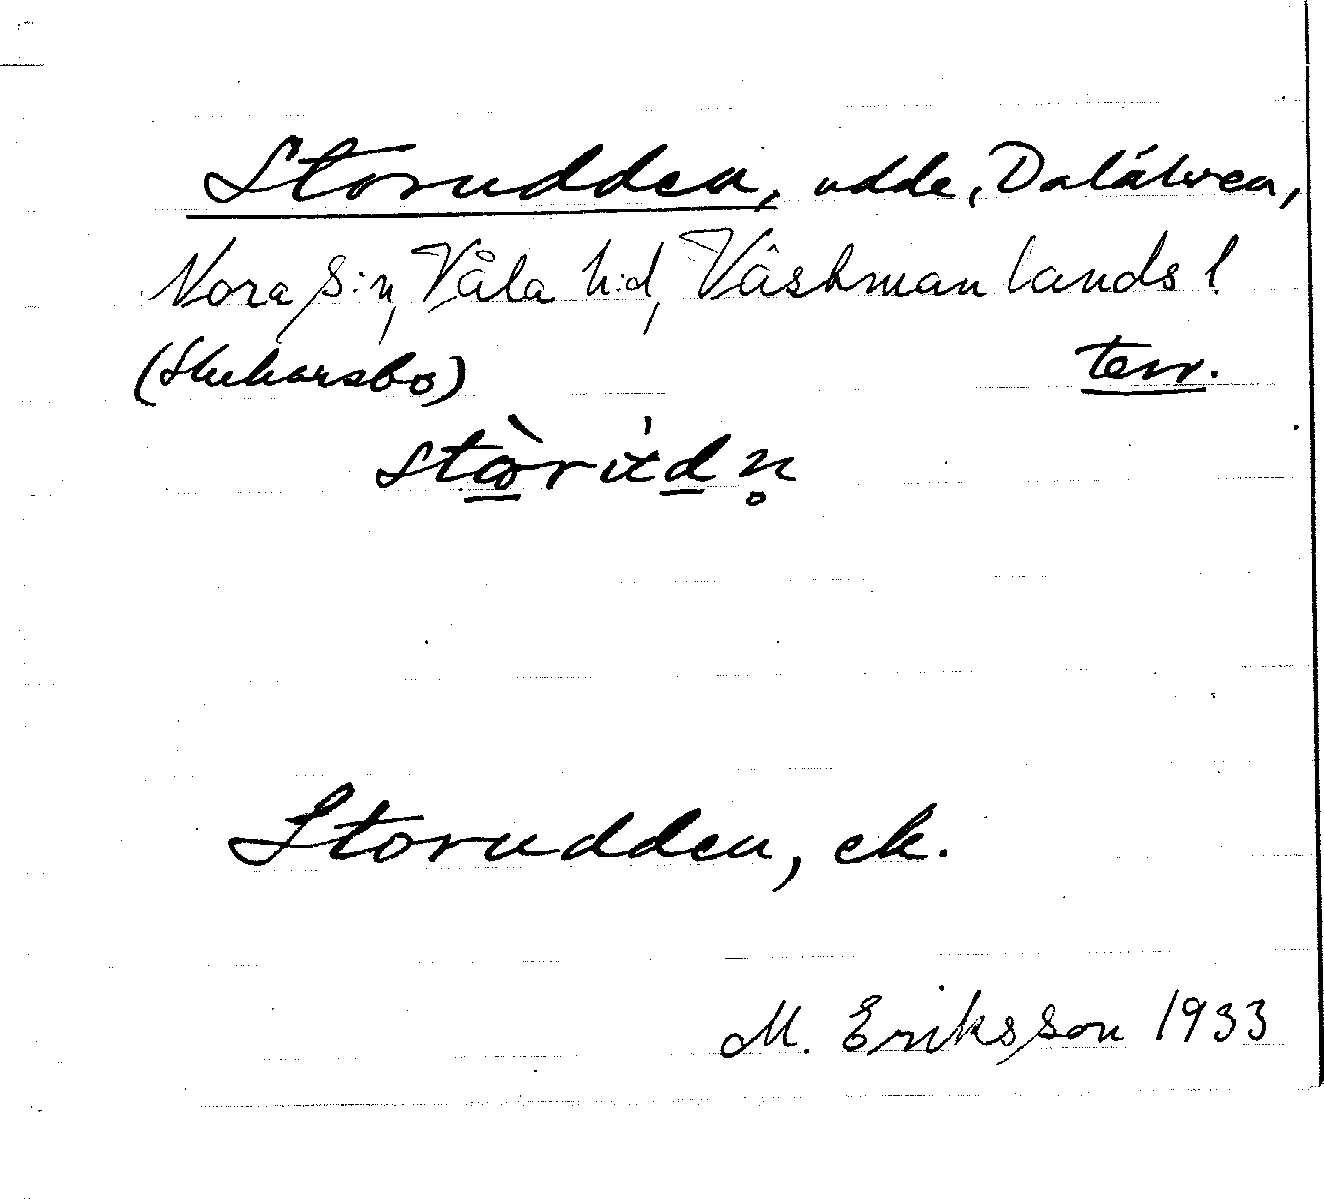 Storudden, udde, Dalälven,
Nora s:n, Våla h:d, Västmanlands l.
(Skekarsbo) terr.
Storudden, ek.
M. Eriksson 1933